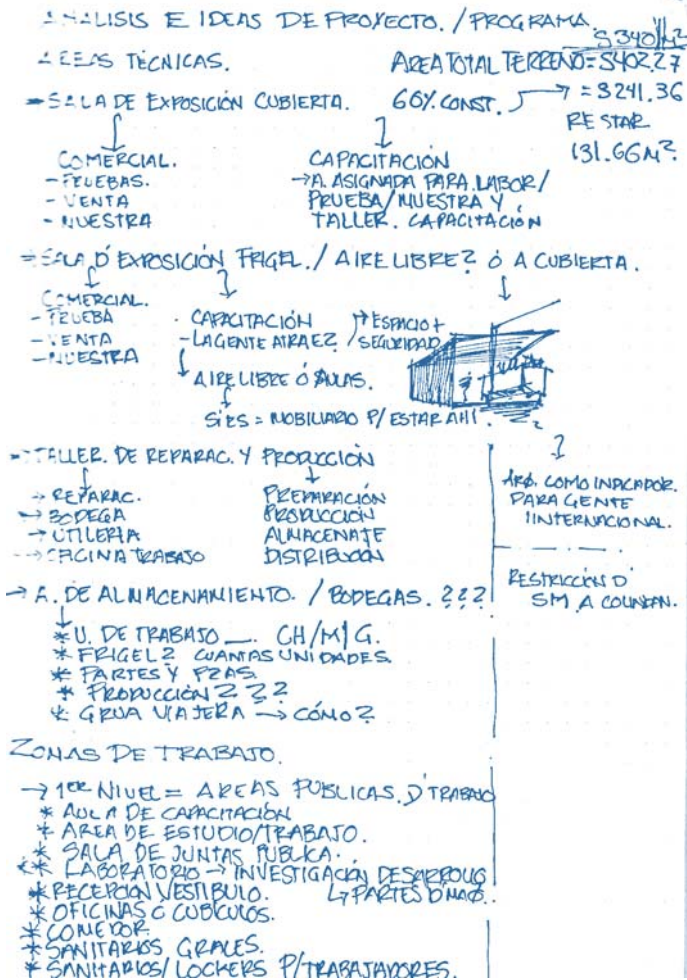 ANALISIS E IDEAS DE PROYECTO. / PROGRAMA
5340 M2
AREAS TECNICAS.
AREA TOTAL TERRENO = 5402.27
60% CONST. → = 3241.36
RESTAR
131.66 M2.
SALA DE EXPOSICIÓN CUBIERTA.
COMERCIAL.
- PRUEBAS.
- VENTA
- MUESTRA
CAPACITACIÓN
→ A. ASIGNADA PARA LABOR/
PRUEBA/MUESTRA Y
TALLER. CAPACITACIÓN
SALA D' EXPOSICIÓN FRIGEL. / AIRE LIBRE? Ó A CUBIERTA.
COMERCIAL.
- PRUEBA
- VENTA
- MUESTRA
- CAPACITACIÓN
- LA GENTE ATRAE?
ESPACIO +
SEGURIDAD
AIRE LIBRE Ó AULAS.
SI ES = MOBILIARIO P/ ESTAR AHI.
TALLER. DE REPARAC. Y PRODUCCIÓN
→ REPARAC.
→ BODEGA
→ UTILERIA
→ OFICINA TRABAJO
PREPARACIÓN
PRODUCCIÓN
ALMACENAJE
DISTRIBUCION
ARQ. COMO INDICADOR.
PARA GENTE
INTERNACIONAL.
RESTRICCIÓN D'
5M A COLINDAN.
→ A. DE ALMACENAMIENTO. / BODEGAS. ???
* U. DE TRABAJO __ CH/M/G.
* FRIGEL? CUANTAS UNIDADES.
* PARTES Y PZAS.
* PRODUCCIÓN ???
* GRUA VIAJERA → CÓMO?
ZONAS DE TRABAJO.
→ 1ER NIVEL = AREAS PUBLICAS. D' TRABAJO
* AULA DE CAPACITACIÓN
* AREA DE ESTUDIO/TRABAJO.
* SALA DE JUNTAS PUBLICA.
** LABORATORIO → INVESTIGACIÓN DESARROLLO
↳ PARTES D' MAQ.
* RECEPCION VESTIBULO.
* OFICINAS O CUBICULOS.
* COMEDOR
* SANITARIOS GRALES.
* SANITARIOS/LOCKERS P/TRABAJADORES.